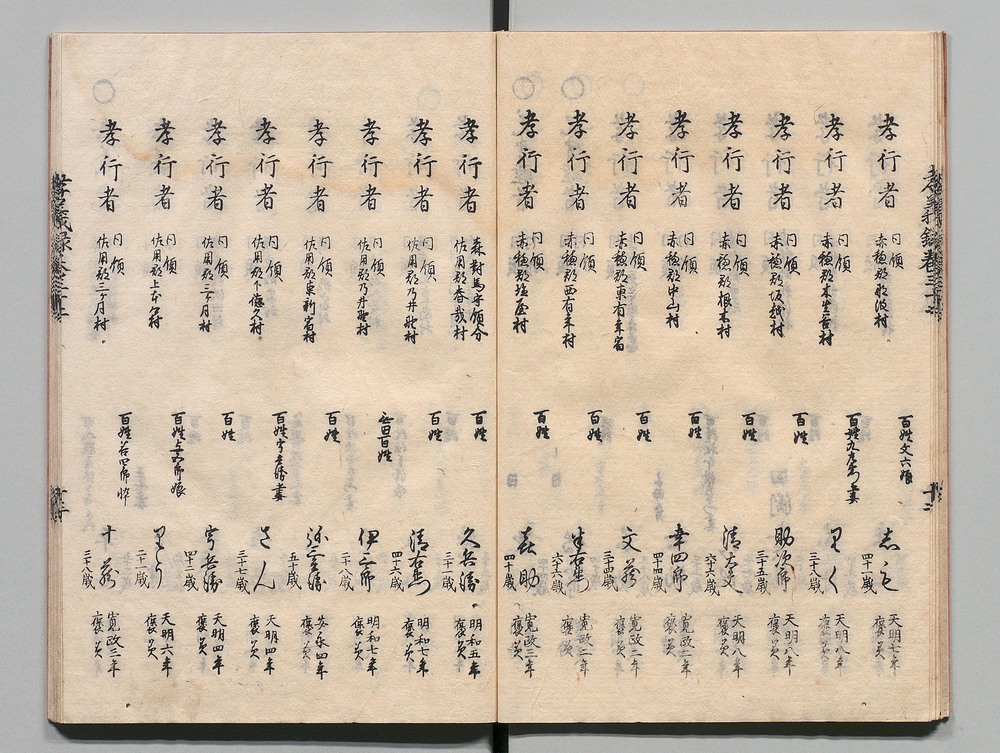 孝行者 同領 赤穂郡那波村 百姓文六娘 志も 四十一歳 天明七年 褒美
孝行者 同領 赤穂郡木生谷村 百姓 妻 りく 三十八歳 天明八年 褒美
孝行者 同領 赤穂郡坂越村 百姓 助次郎 三十五歳 天明八年 褒美
孝行者 同領 赤穂郡根木村 百姓 清大夫 六十六歳 天明八年 褒美
孝行者 同領 赤穂郡中山村 百姓 幸四郎 四十四歳 寛政二年 褒美
孝行者 同領 赤穂郡東有年宿 百姓 文蔵 三十四歳 寛政二年 褒美
孝行者 同領 赤穂郡西有年村 百姓 六十六歳 寛政二年 褒美
孝行者 同領 赤穂郡塩屋村 百姓 喜助 四十歳 寛政三年 褒美
孝行者 森対馬守領分 佐用郡春哉村 百姓 久兵衛 三十一歳 明和五年 褒美
孝行者 同領 佐用郡乃井野村 百姓 清右衛門 四十六歳 明和七年 褒美
孝行者 同領 佐用郡乃井野村 無田百姓 伊三郎 二十一歳 明和七年 褒美
孝行者 同領 佐用郡東新宿村 百姓 弥三兵衛 五十歳 安永四年 褒美
孝行者 同領 佐用郡下徳久村 百姓 妻 さん 三十七歳 天明四年 褒美
孝行者 同領 佐用郡三ヶ月村 百姓 四十二歳 天明四年 褒美
孝行者 同領 佐用郡上本郷村 百姓 娘 りう 二十一歳 天明六年 褒美
孝行者 同領 佐用郡三ヶ月村 百姓 谷四郎忰 十蔵 三十八歳 寛政三年 褒美